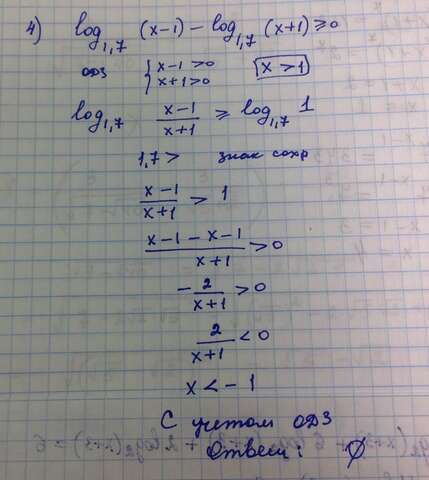 4) log₁,₇ (x-1) - log₁,₇ (x+1) ≥ 0
ОДЗ { x-1 >0 x+1>0 x > 1
log₁,₇ (x-1)/(x+1) ≥ log₁,₇ 1
1,7 > знак сохр
(x-1)/(x+1) > 1
(x-1-x-1)/(x+1) >0
- 2/(x+1) >0
2/(x+1) <0
x < -1
С учетом ОДЗ
Ответ: ∅